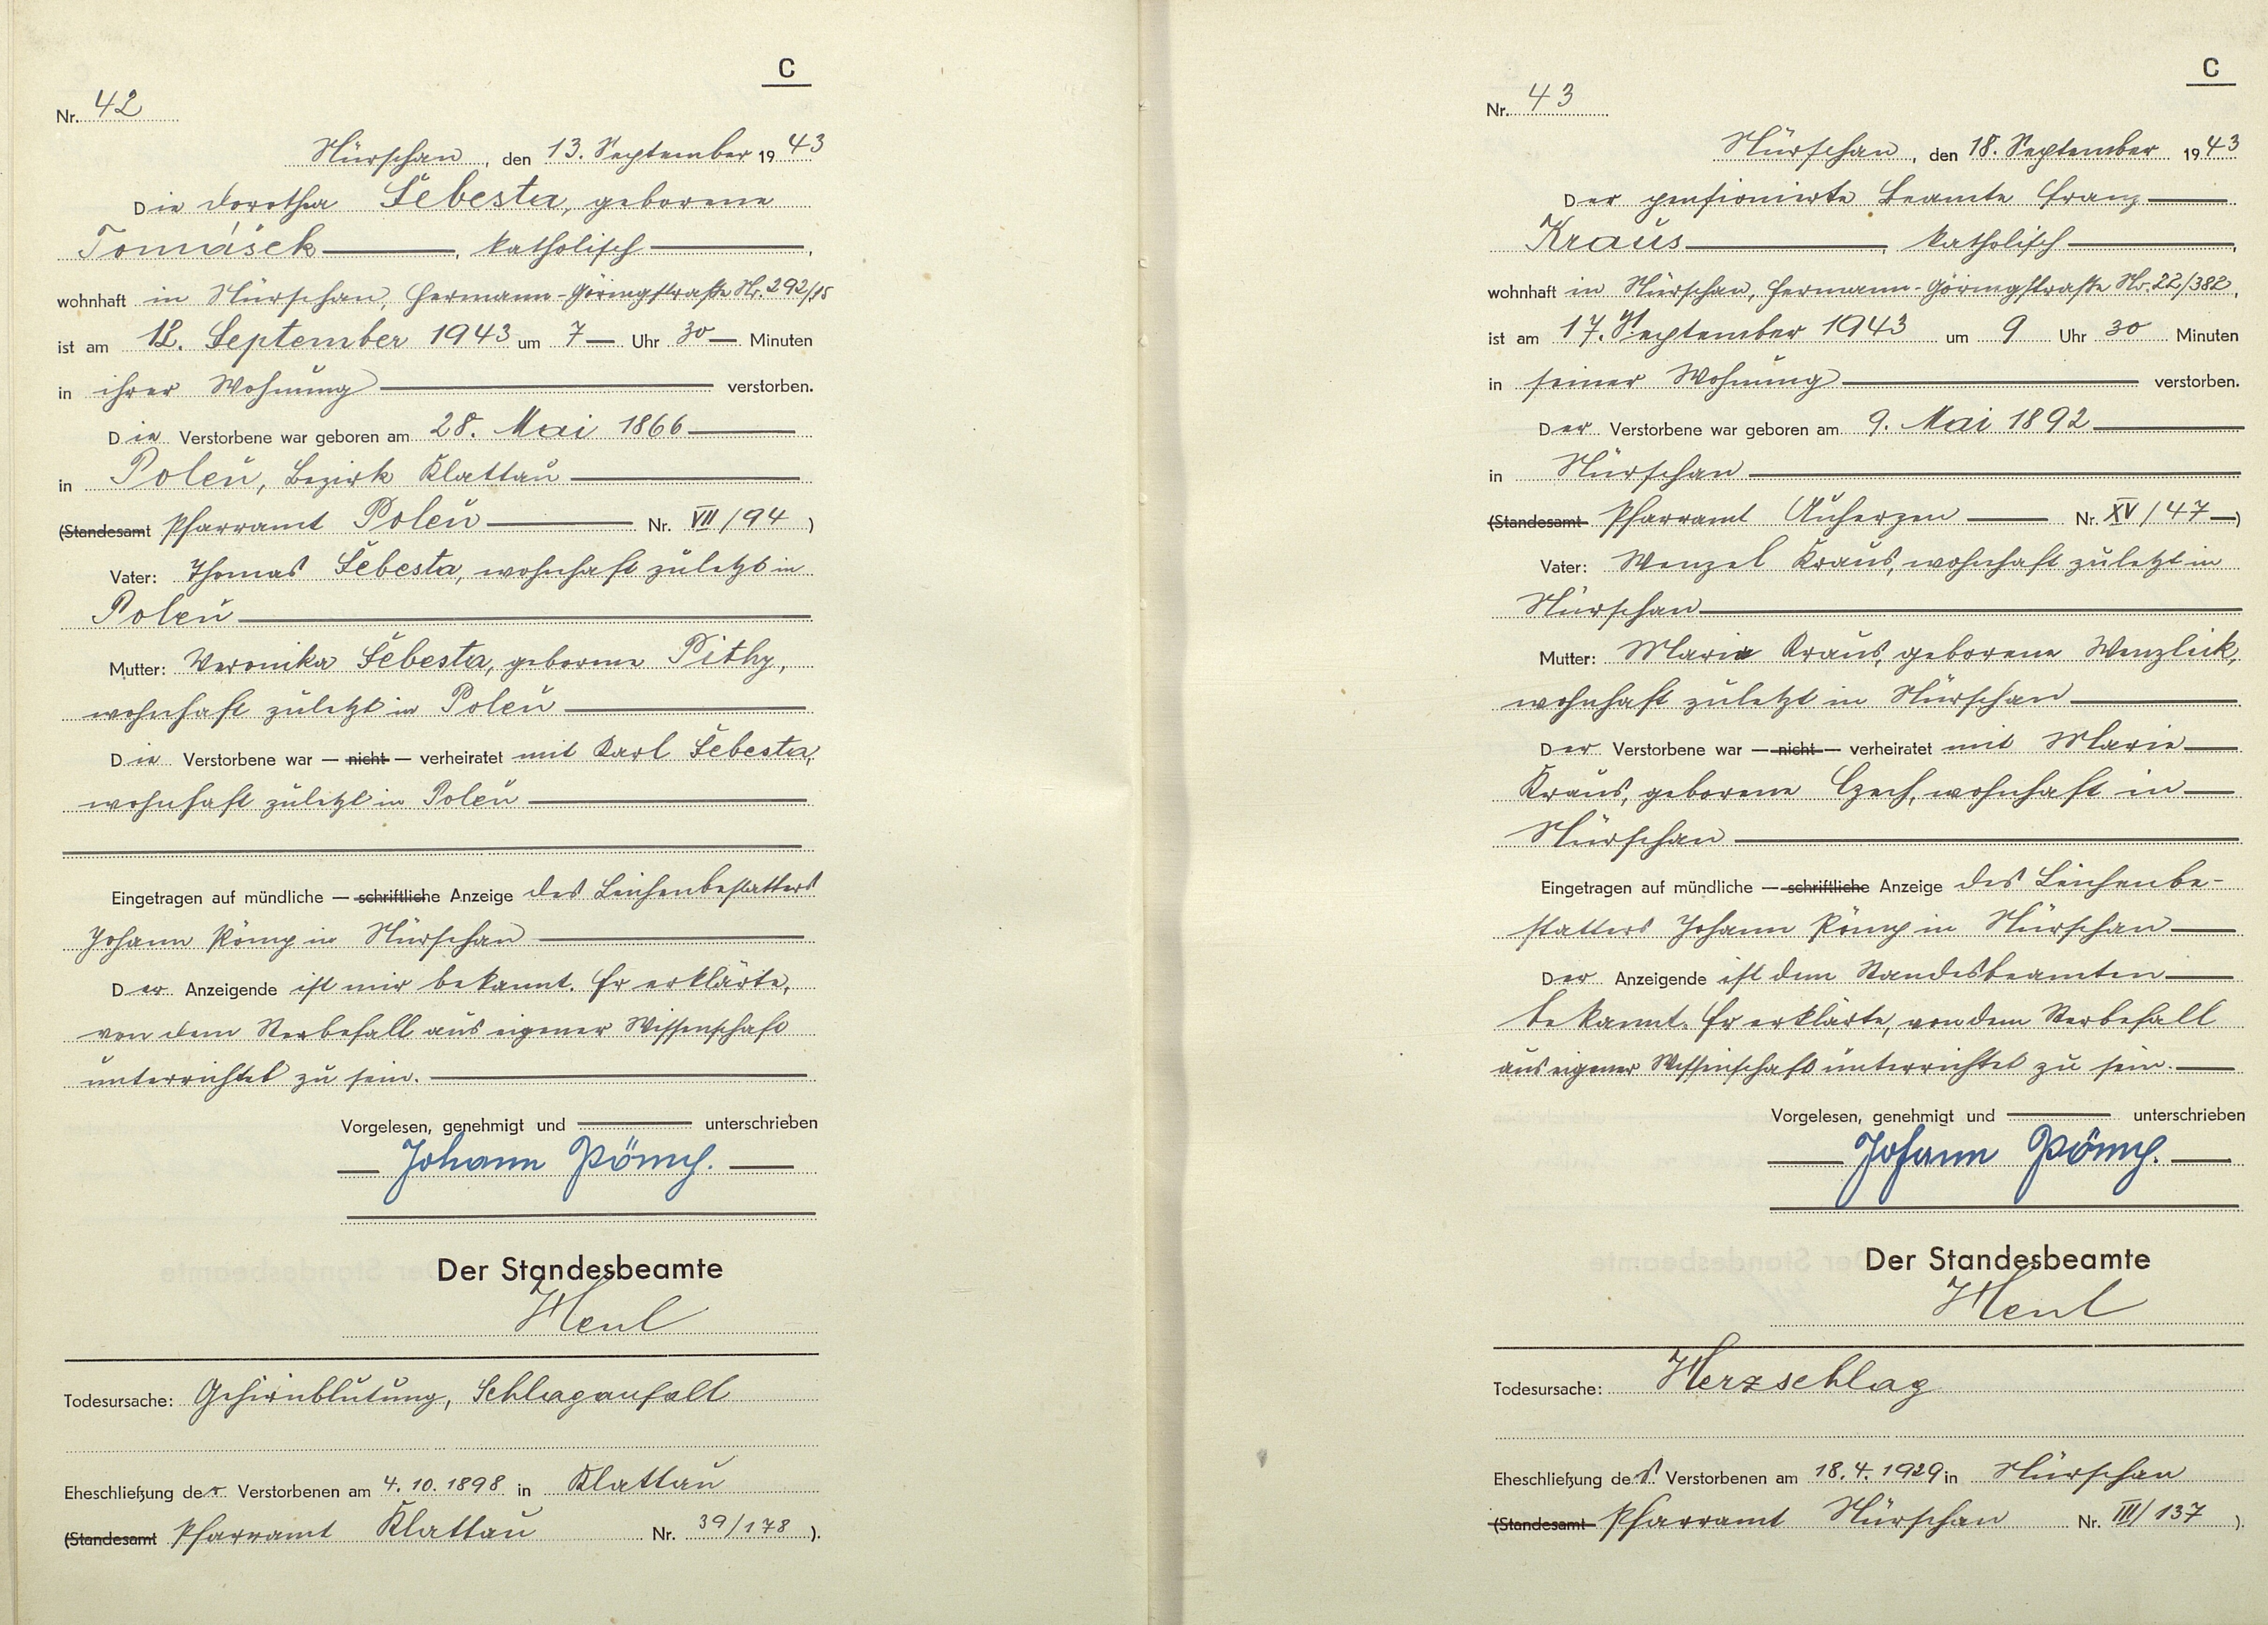 C
Nr. 42
Nürschan, den 13. September 1943
Die Dorothea Šebesta, geborene
Tomášek, katholisch,
wohnhaft in Nürschan, Hermann-Göringstraße Nr. 292/15
ist am 12. September 1943 um 7 Uhr 30 Minuten
in ihrer Wohnung verstorben.
Die Verstorbene war geboren am 28. Mai 1866
in Poleň, Bezirk Klattau
(Standesamt Pfarramt Poleň Nr. VII/94)
Vater: Thomas Šebesta, wohnhaft zuletzt in
Poleň
Mutter: Veronika Šebesta, geborene Pithy,
wohnhaft zuletzt in Poleň
Die Verstorbene war — nicht — verheiratet mit Karl Šebesta,
wohnhaft zuletzt in Poleň
Eingetragen auf mündliche — schriftliche Anzeige des Leichenbestatters
Johann Römp in Nürschan
Der Anzeigende ist mir bekannt. Er erklärte,
von dem Sterbefall aus eigener Wissenschaft
unterrichtet zu sein.
Vorgelesen, genehmigt und unterschrieben
Johann Römp.
Der Standesbeamte
Henl
Todesursache: Gehirnblutung, Schlaganfall
Eheschließung der Verstorbenen am 4.10.1898 in Klattau
(Standesamt Pfarramt Klattau Nr. 39/178).
C
Nr. 43
Nürschan, den 18. September 1943
Der pensionierte Beamte Franz
Kraus, katholisch,
wohnhaft in Nürschan, Hermann-Göringstraße Nr. 22/382,
ist am 17. September 1943 um 9 Uhr 30 Minuten
in seiner Wohnung verstorben.
Der Verstorbene war geboren am 9. Mai 1892
in Nürschan
(Standesamt Pfarramt Auherzen Nr. XV/47)
Vater: Wenzel Kraus, wohnhaft zuletzt in
Nürschan
Mutter: Maria Kraus, geborene Wenzlick,
wohnhaft zuletzt in Nürschan
Der Verstorbene war — nicht — verheiratet mit Marie
Kraus, geborene Czech, wohnhaft in
Nürschan
Eingetragen auf mündliche — schriftliche Anzeige des Leichenbe-
statters Johann Römp in Nürschan
Der Anzeigende ist dem Standesbeamten
bekannt. Er erklärte, von dem Sterbefall
aus eigener Wissenschaft unterrichtet zu sein.
Vorgelesen, genehmigt und unterschrieben
Johann Römp.
Der Standesbeamte
Henl
Todesursache: Herzschlag
Eheschließung des Verstorbenen am 18.4.1929 in Nürschan
(Standesamt Pfarramt Nürschan Nr. III/137).